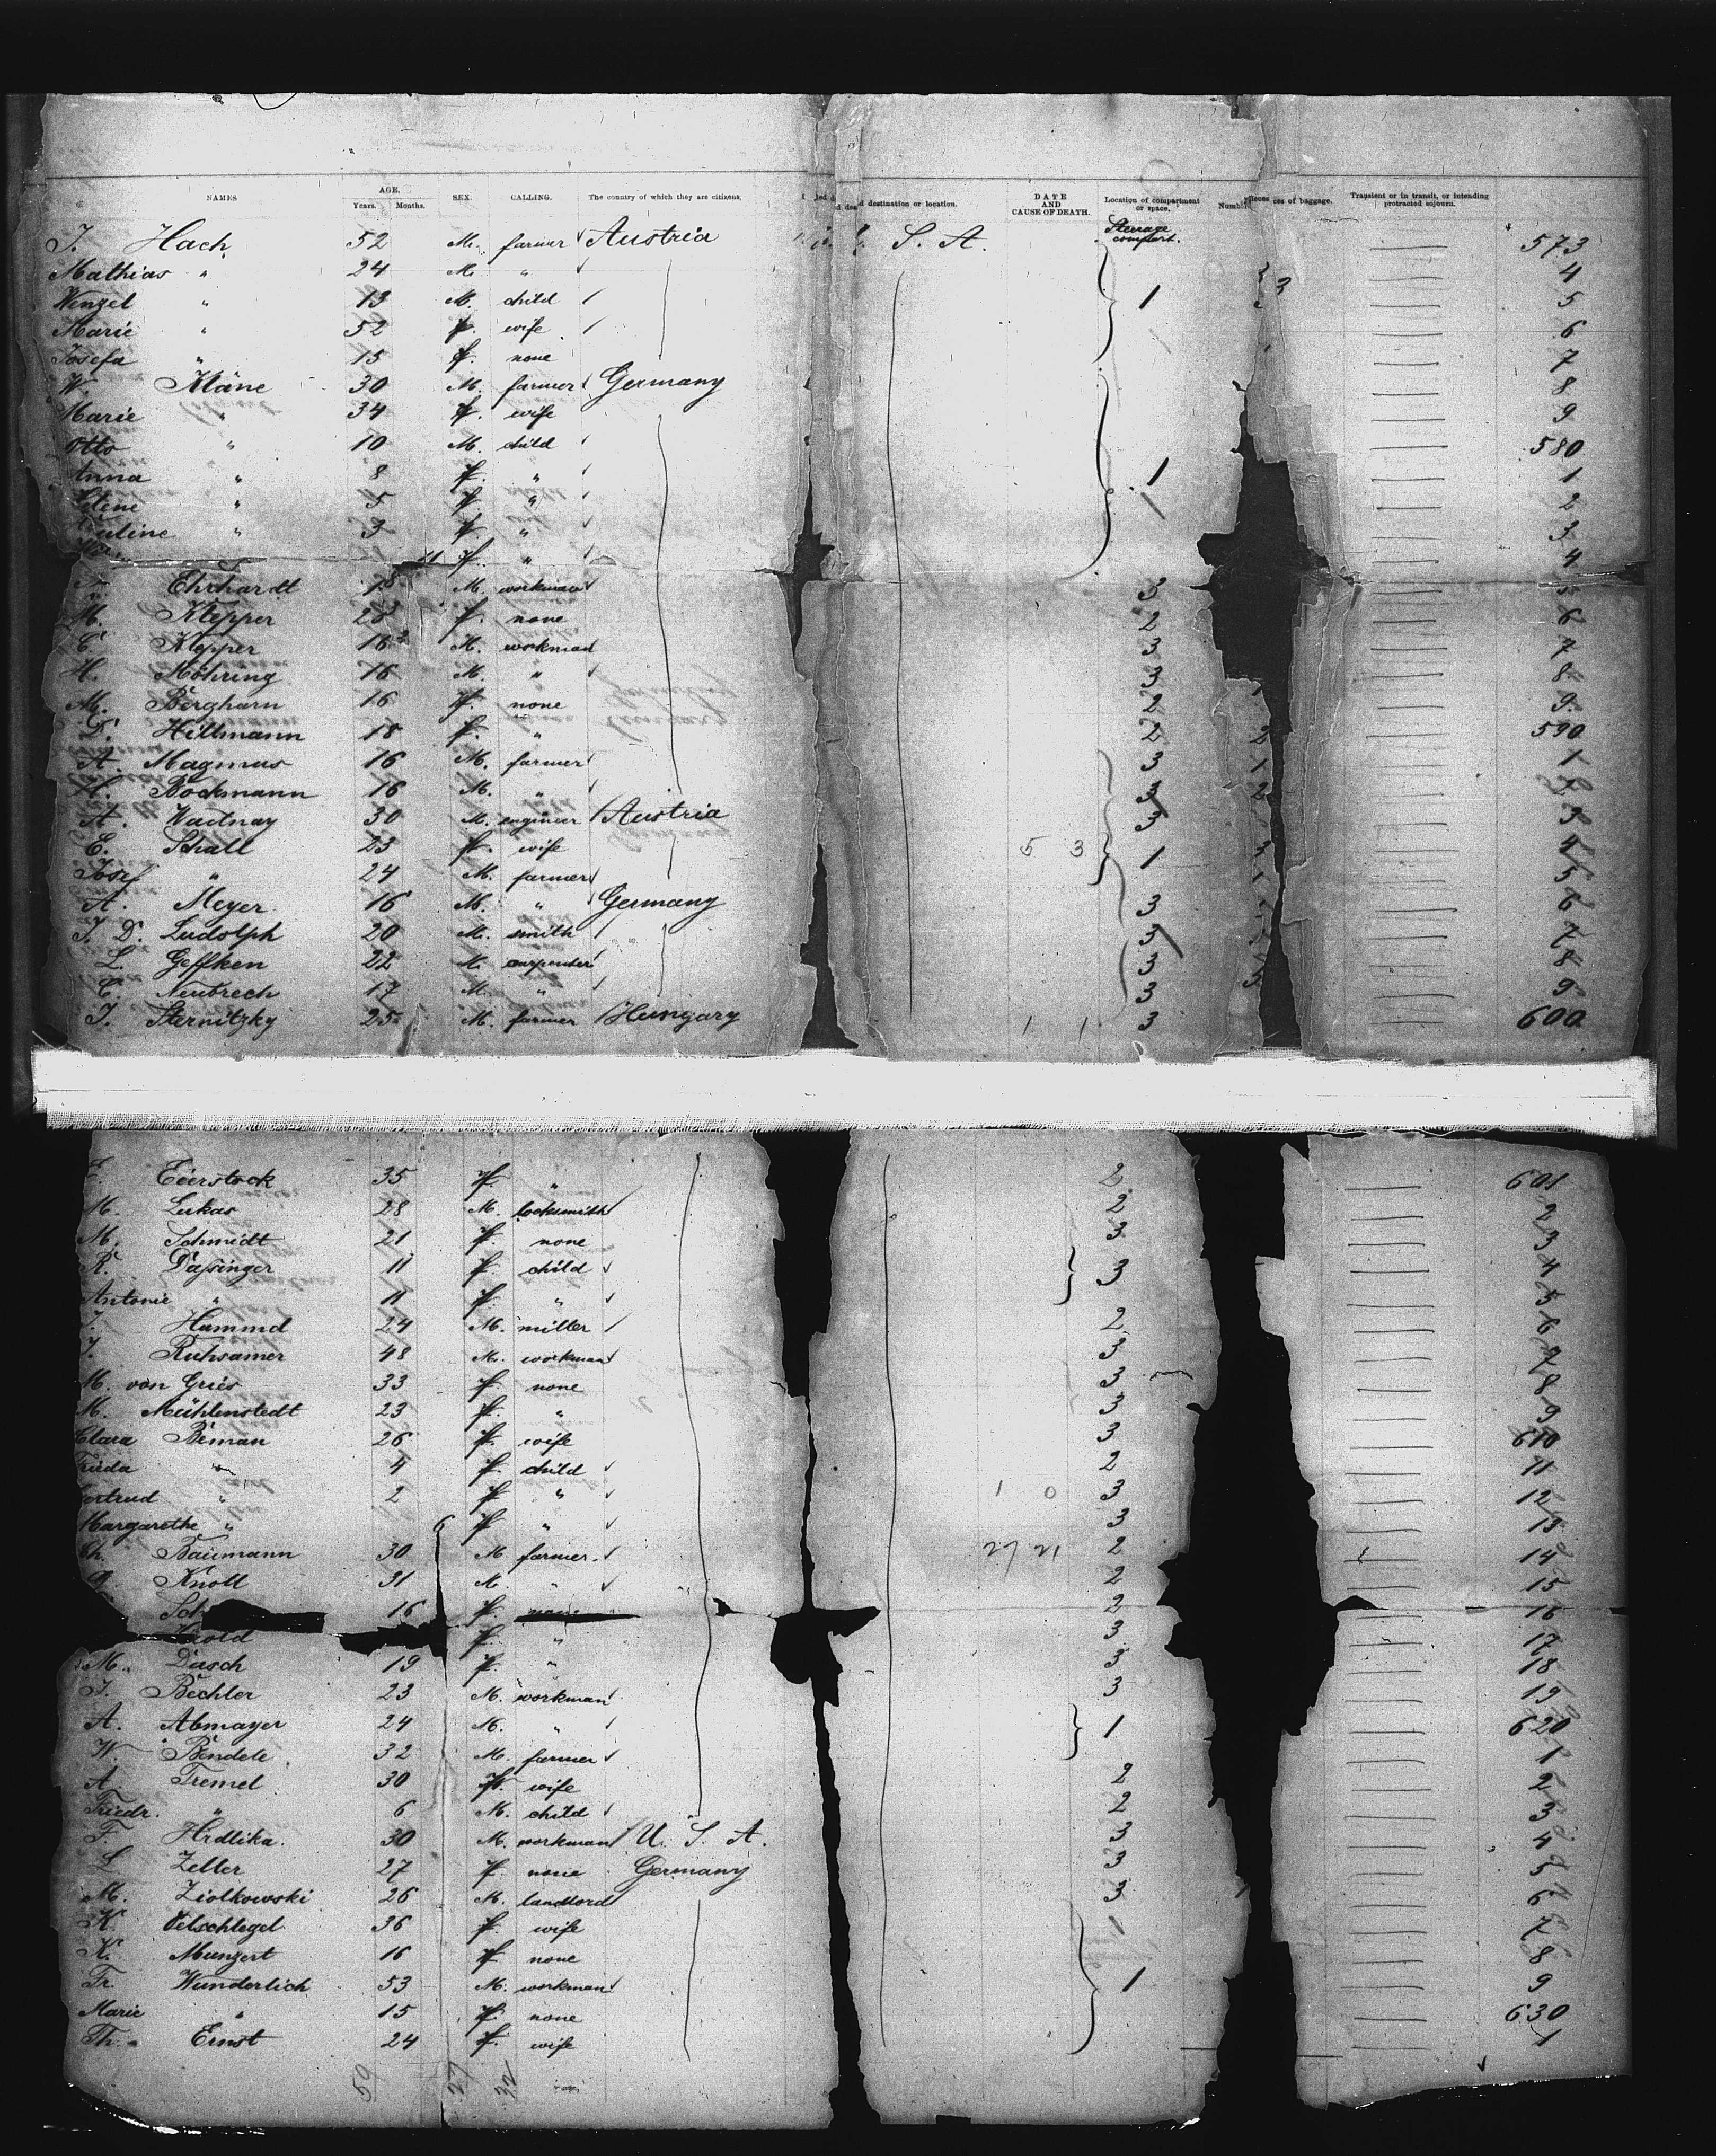 NAMES AGE. Years. Months. SEX. CALLING. The country of which they are citizens. destination or location. DATE AND CAUSE OF DEATH. Location of compartment or space. Number ces of baggage. Transient or in transit, or intending protracted sojourn.
J. Hach 52 M. farmer Austria S. A. Steerage compart. 573
Mathias " 24 M. " 4
Wenzel " 13 M. child 1 3 5
Marie " 52 f. wife 6
Josefa " 15 f. none 7
W. Kläne 30 M. farmer Germany 8
Marie " 34 f. wife 9
Otto " 10 M. child 580
Anna " 8 f. " 1 1
" 5 f. " 2
" 3 f. " 3
11 f. " 4
Ehrhardt M. workman 3 5
M. Klepper f. none 2 6
C. Klepper 16 M. workman 3 7
H. Möhring 16 M. " 3 8
M. Bergharn 16 f. none 2 9
D. Hillmann 18 f. " 2 590
A. Magnus 16 M. farmer 3 1
H. Bockmann 16 M. " 3 2
A. Wactnay 30 M. engineer Austria 3 3
E. Schall 23 f. wife 5 3 1 4
Josef " 24 M. farmer 5
A. Meyer 16 M. " Germany 3 6
J. D. Ludolph 20 M. smith 3 7
L. Geffken 22 M. carpender 3 8
C. Neubrech 17 M. " 3 9
J. Sternitzky 25 M. farmer Hungary 1 1 3 600
E. Eierstock 35 f. " 2 601
M. Lukas 28 M. locksmith 2 2
M. Schmidt 21 f. none 3 3
R. Dassinger 11 f. child 3 4
Antonie " 11 f. " 5
J. Hammd 24 M. miller 2 6
J. Ruhsamer 48 M. workman 3 7
M. von Gries 33 f. none 3 8
M. Mühlenstedt 23 f. " 3 9
Clara Beman 26 f. wife 3 610
Frieda " 4 f. child 2 11
ertrud " 2 f. " 1 0 3 12
Margarethe " 6 f. " 3 13
Ch. Baumann 30 M. farmer 27 21 2 14
Knoll 31 M. " 2 15
Sch 16 f. none 2 16
f. " 3 17
M. Dasch 19 f. " 3 18
J. Bechler 23 M. workman 3 19
A. Abmayer 24 M. " 1 620
W. Bendele 32 M. farmer 1
A. Tremel 30 f. wife 2 2
Friedr. " 6 M. child 2 3
F. Hrdlika. 30 M. workman U. S. A. 3 4
L. Zeller 27 f. none Germany 3 5
M. Ziolkowski 26 M. landlord 3 6
K. Oelschlegel 36 f. wife 1 7
K. Munzert 16 f. none 8
Fr. Wunderlich 53 M. workman 1 9
Marie " 15 f. none 630
Th. Ernst 24 f. wife 1
59 27 32